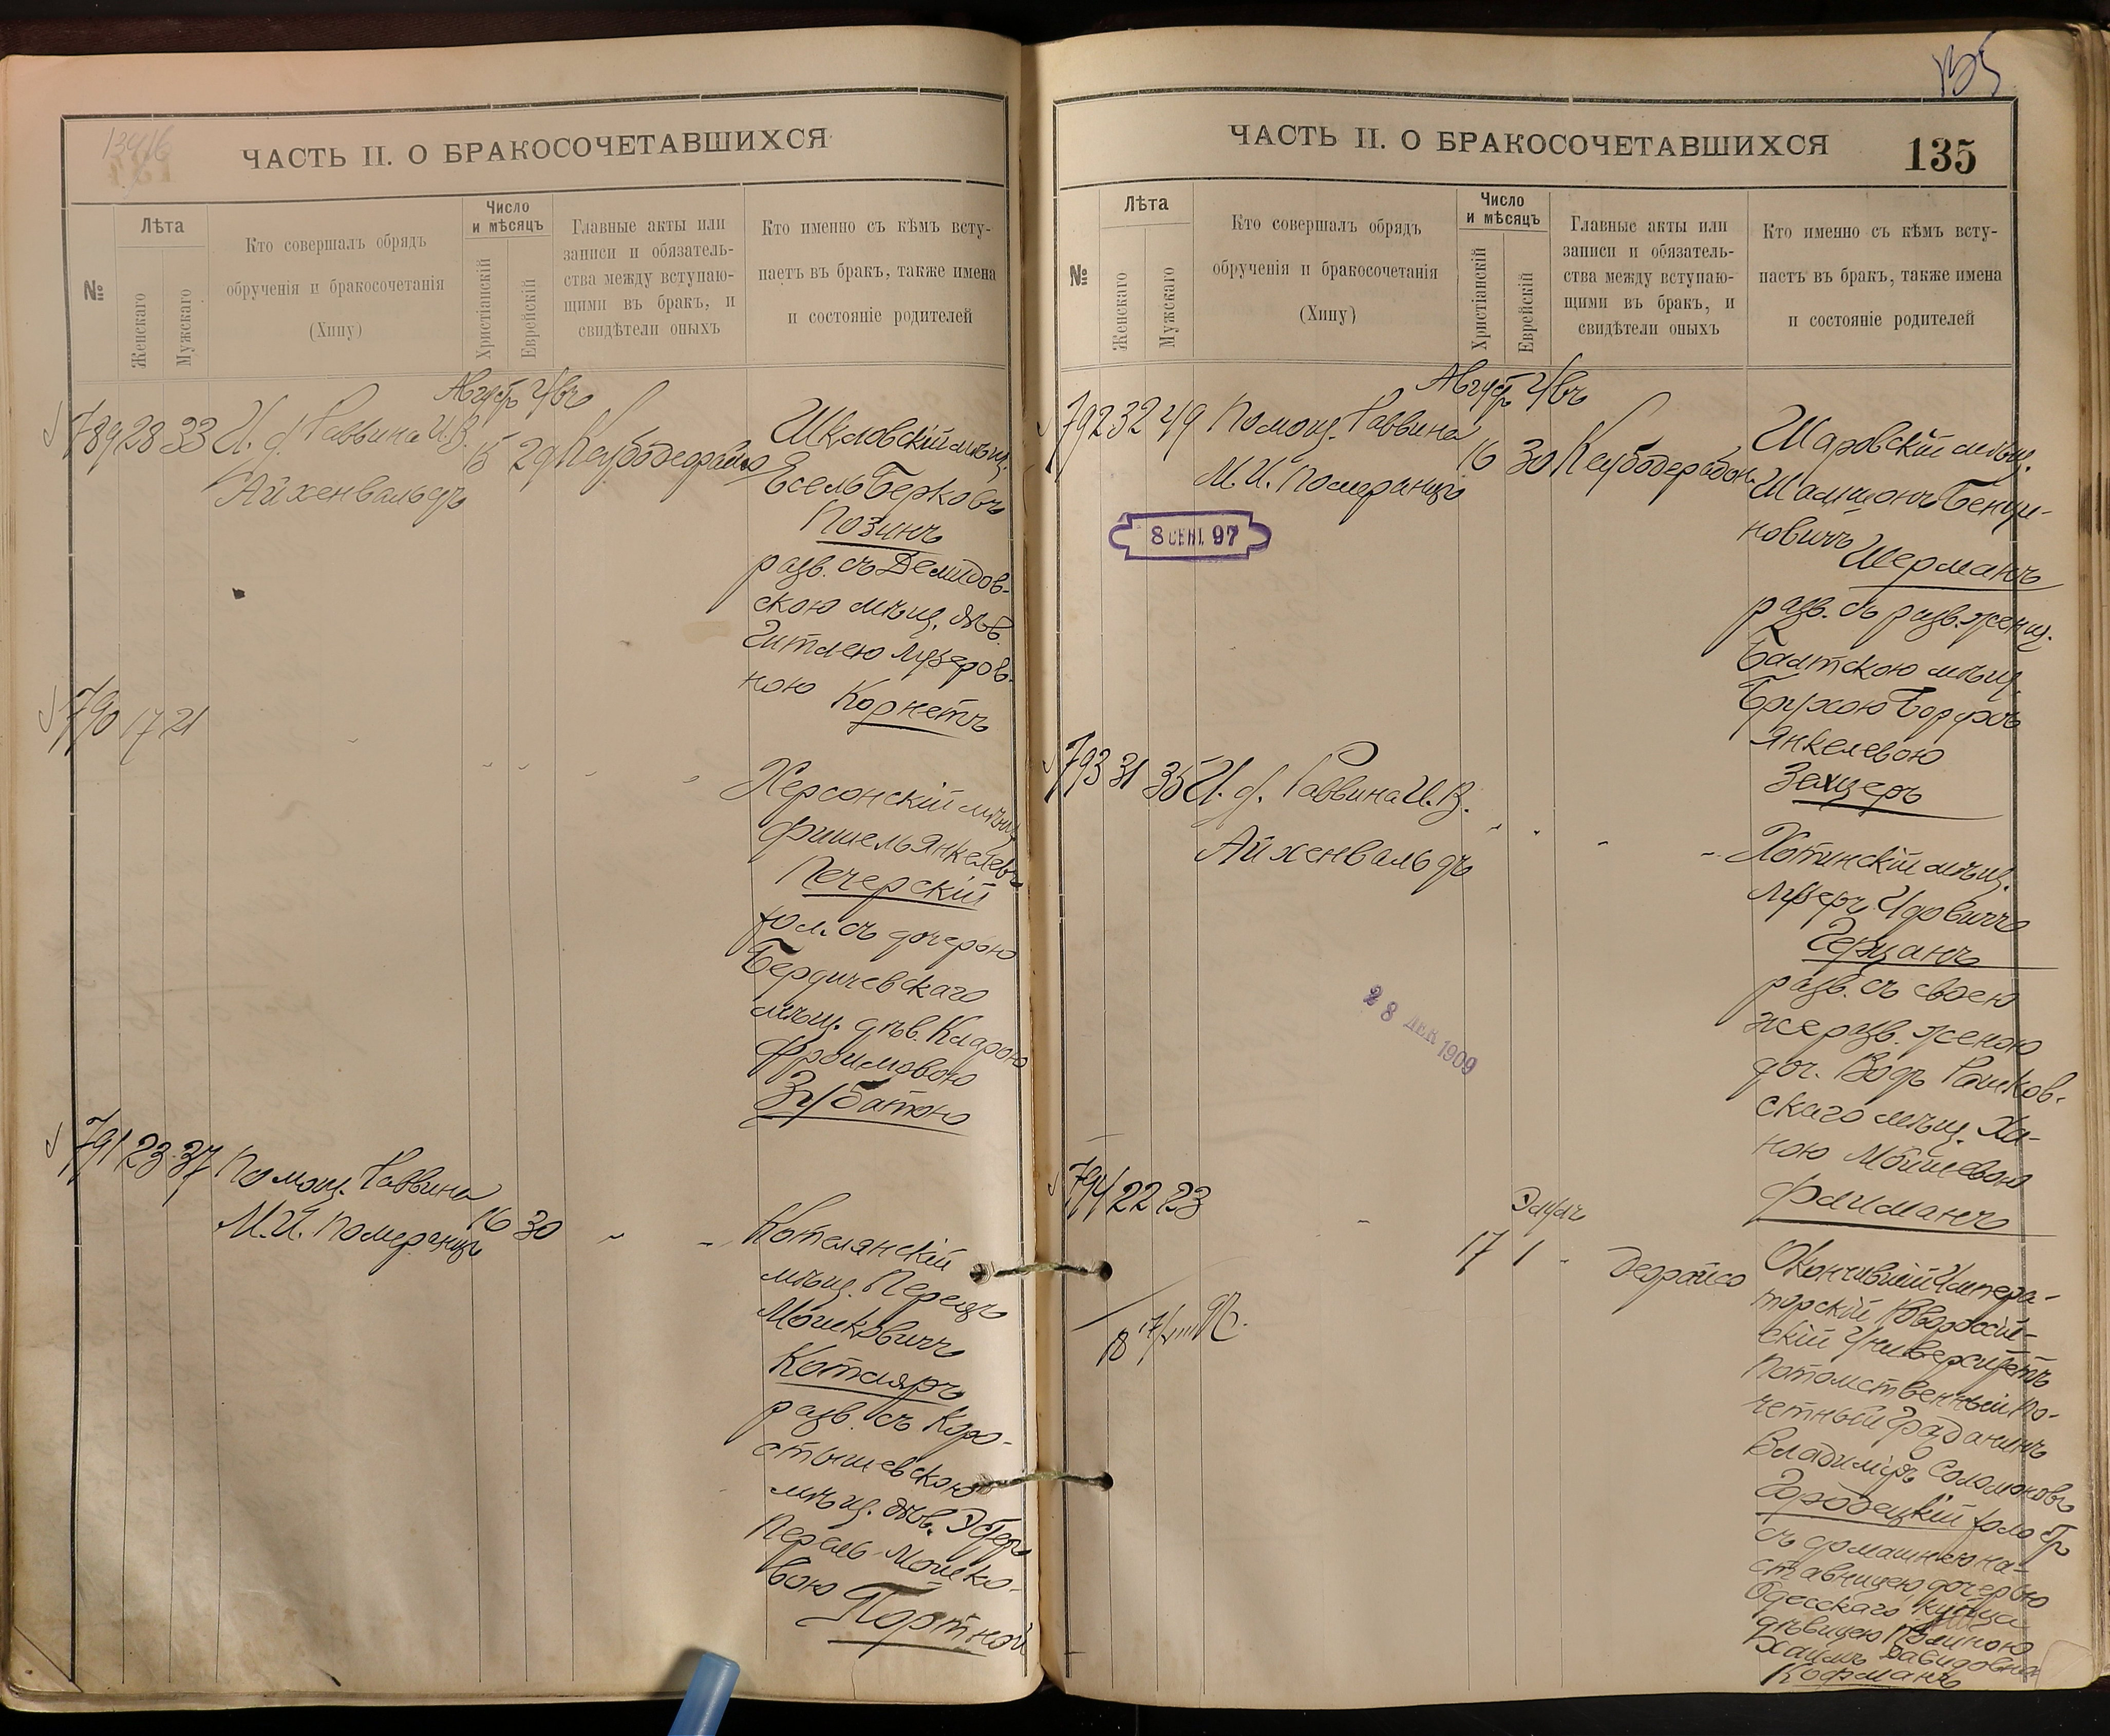 ЧАСТЬ II. О БРАКОСОЧЕТАВШИХСЯ
№
Лѣта
Женскаго
Мужскаго
Кто совершалъ обрядъ
обрученія и бракосочетанія
(Хипу)
Число
и мѣсяцъ
Христіанскій
Еврейскій
Главные акты или
записи и обязатель-
ства между вступаю-
щими въ бракъ, и
свидѣтели оныхъ
Кто именно съ кѣмъ всту-
паетъ въ бракъ, также имена
и состояніе родителей
Август Увъ
789 28 33 И. д. Раввина И. В.
Айхенвальдъ
15 29
Шкловскій мѣщ.
Есель Берковъ
Позинъ
разв. съ Демидов-
скою мѣщ. дѣв.
Гитлею Лузеров-
ною Корнетъ
790 17 21
Херсонскій мѣщ.
Фишель Янкелевъ
Печерскій
хол. съ дочерью
Бердичевскаго
мѣщ. дѣв. Кларою
Фроимовою
Зубатою
791 23 37 Помощ. Раввина
М. И. Померанцъ
16 30
Котелянскій
мѣщ. Перецъ
Мошковичъ
Котляръ
разв. съ Коро-
стышевскою
мѣщ. дѣв. Эстеръ
Перель Мошко-
вою Портной
ЧАСТЬ II. О БРАКОСОЧЕТАВШИХСЯ
135
№
Лѣта
Женскаго
Мужскаго
Кто совершалъ обрядъ
обрученія и бракосочетанія
(Хипу)
Число
и мѣсяцъ
Христіанскій
Еврейскій
Главные акты или
записи и обязатель-
ства между вступаю-
щими въ бракъ, и
свидѣтели оныхъ
Кто именно съ кѣмъ всту-
паетъ въ бракъ, также имена
и состояніе родителей
Август Увъ
792 32 49 Помощ. Раввина
М. И. Померанцъ
8 СЕНТ. 97
16 30
Шаровскій мѣщ.
новичъ Шерманъ
разв. съ разв. женщ.
Балтскою мѣщ.
Брухою
Янкелевою
Зекцеръ
793 31 35 И. д. Раввина И. В.
Айхенвальдъ
Хотинскій мѣщ.
Лузеръ Идовичъ
Герцанъ
разв. съ своею
же разв. женою
доч. Водъ Рашков-
скаго мѣщ. Ха-
ною Мошковою
Фаиманъ
28 ДЕК 1909
794 22 23
Элулъ
17 1
Окончившій Импера-
торскій Новороссій-
скій Университетъ
потомственный по-
четный Гражданинъ
Владиміръ Соломоновъ
Городецкій
съ домашнею на-
ставницею дочерью
Одесскаго купца
дѣвицею Полиною
Хаимъ Давидовна
Кофманъ